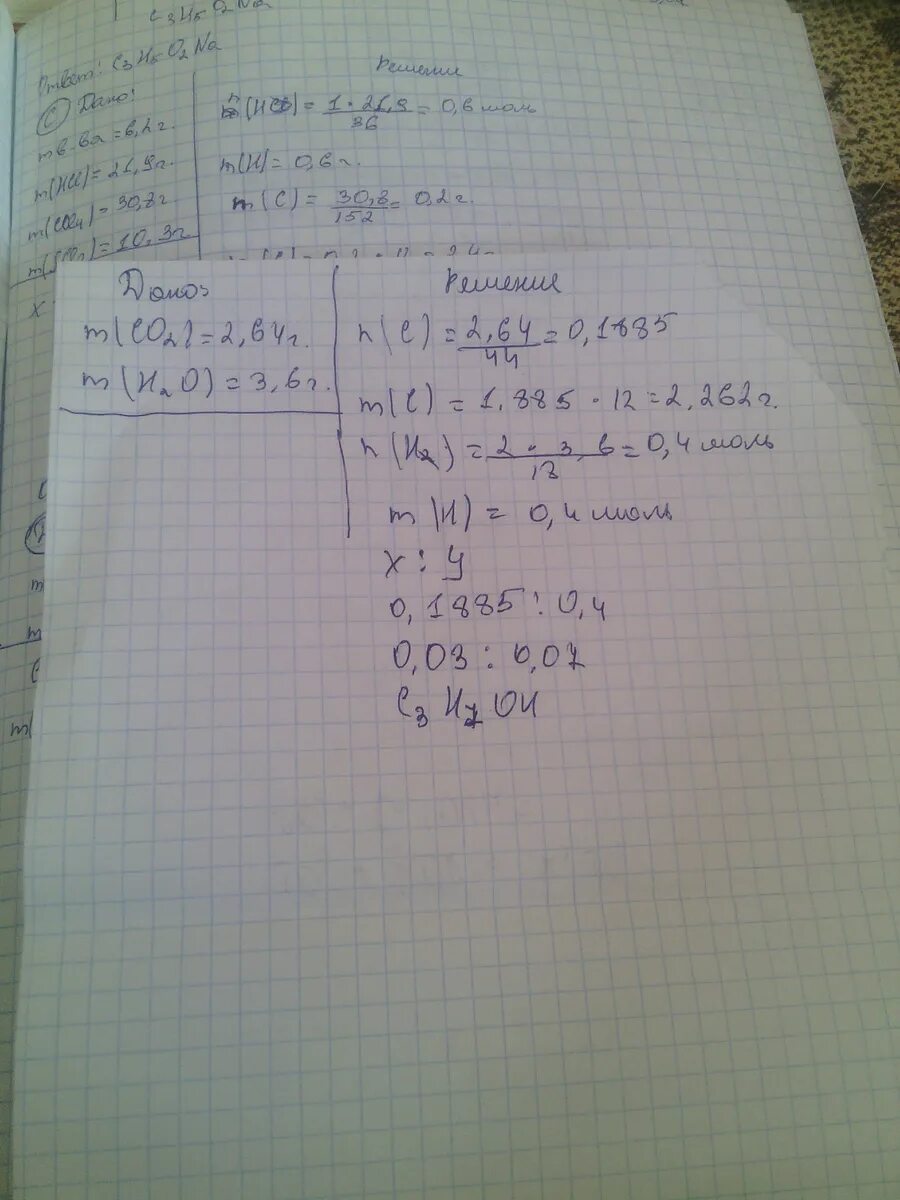 C₃H₅O₂Na
Ответ: C₃H₅O₂Na
Решение
C Дано:
m в ва = 6,2 г.
m(HCl) = 21,9 г.
m(CO₄) = 30,8 г
= 10,3 г
n(HCl) = 1 · 21,9 / 36 = 0,6 моль
m(H) = 0,6 г.
m(C) = 30,8 / 152 = 0,2 г.
x
Дано:
m(CO₂) = 2,64 г.
m(H₂O) = 3,6 г.
Решение
n(C) = 2,64 / 44 = 0,1885
m(C) = 1,885 · 12 = 2,262 г.
n(H₂) = 2 · 3,6 / 18 = 0,4 моль
m(H) = 0,4 моль
x : y
0,1885 : 0,4
0,03 : 0,07
C₃H₇OH